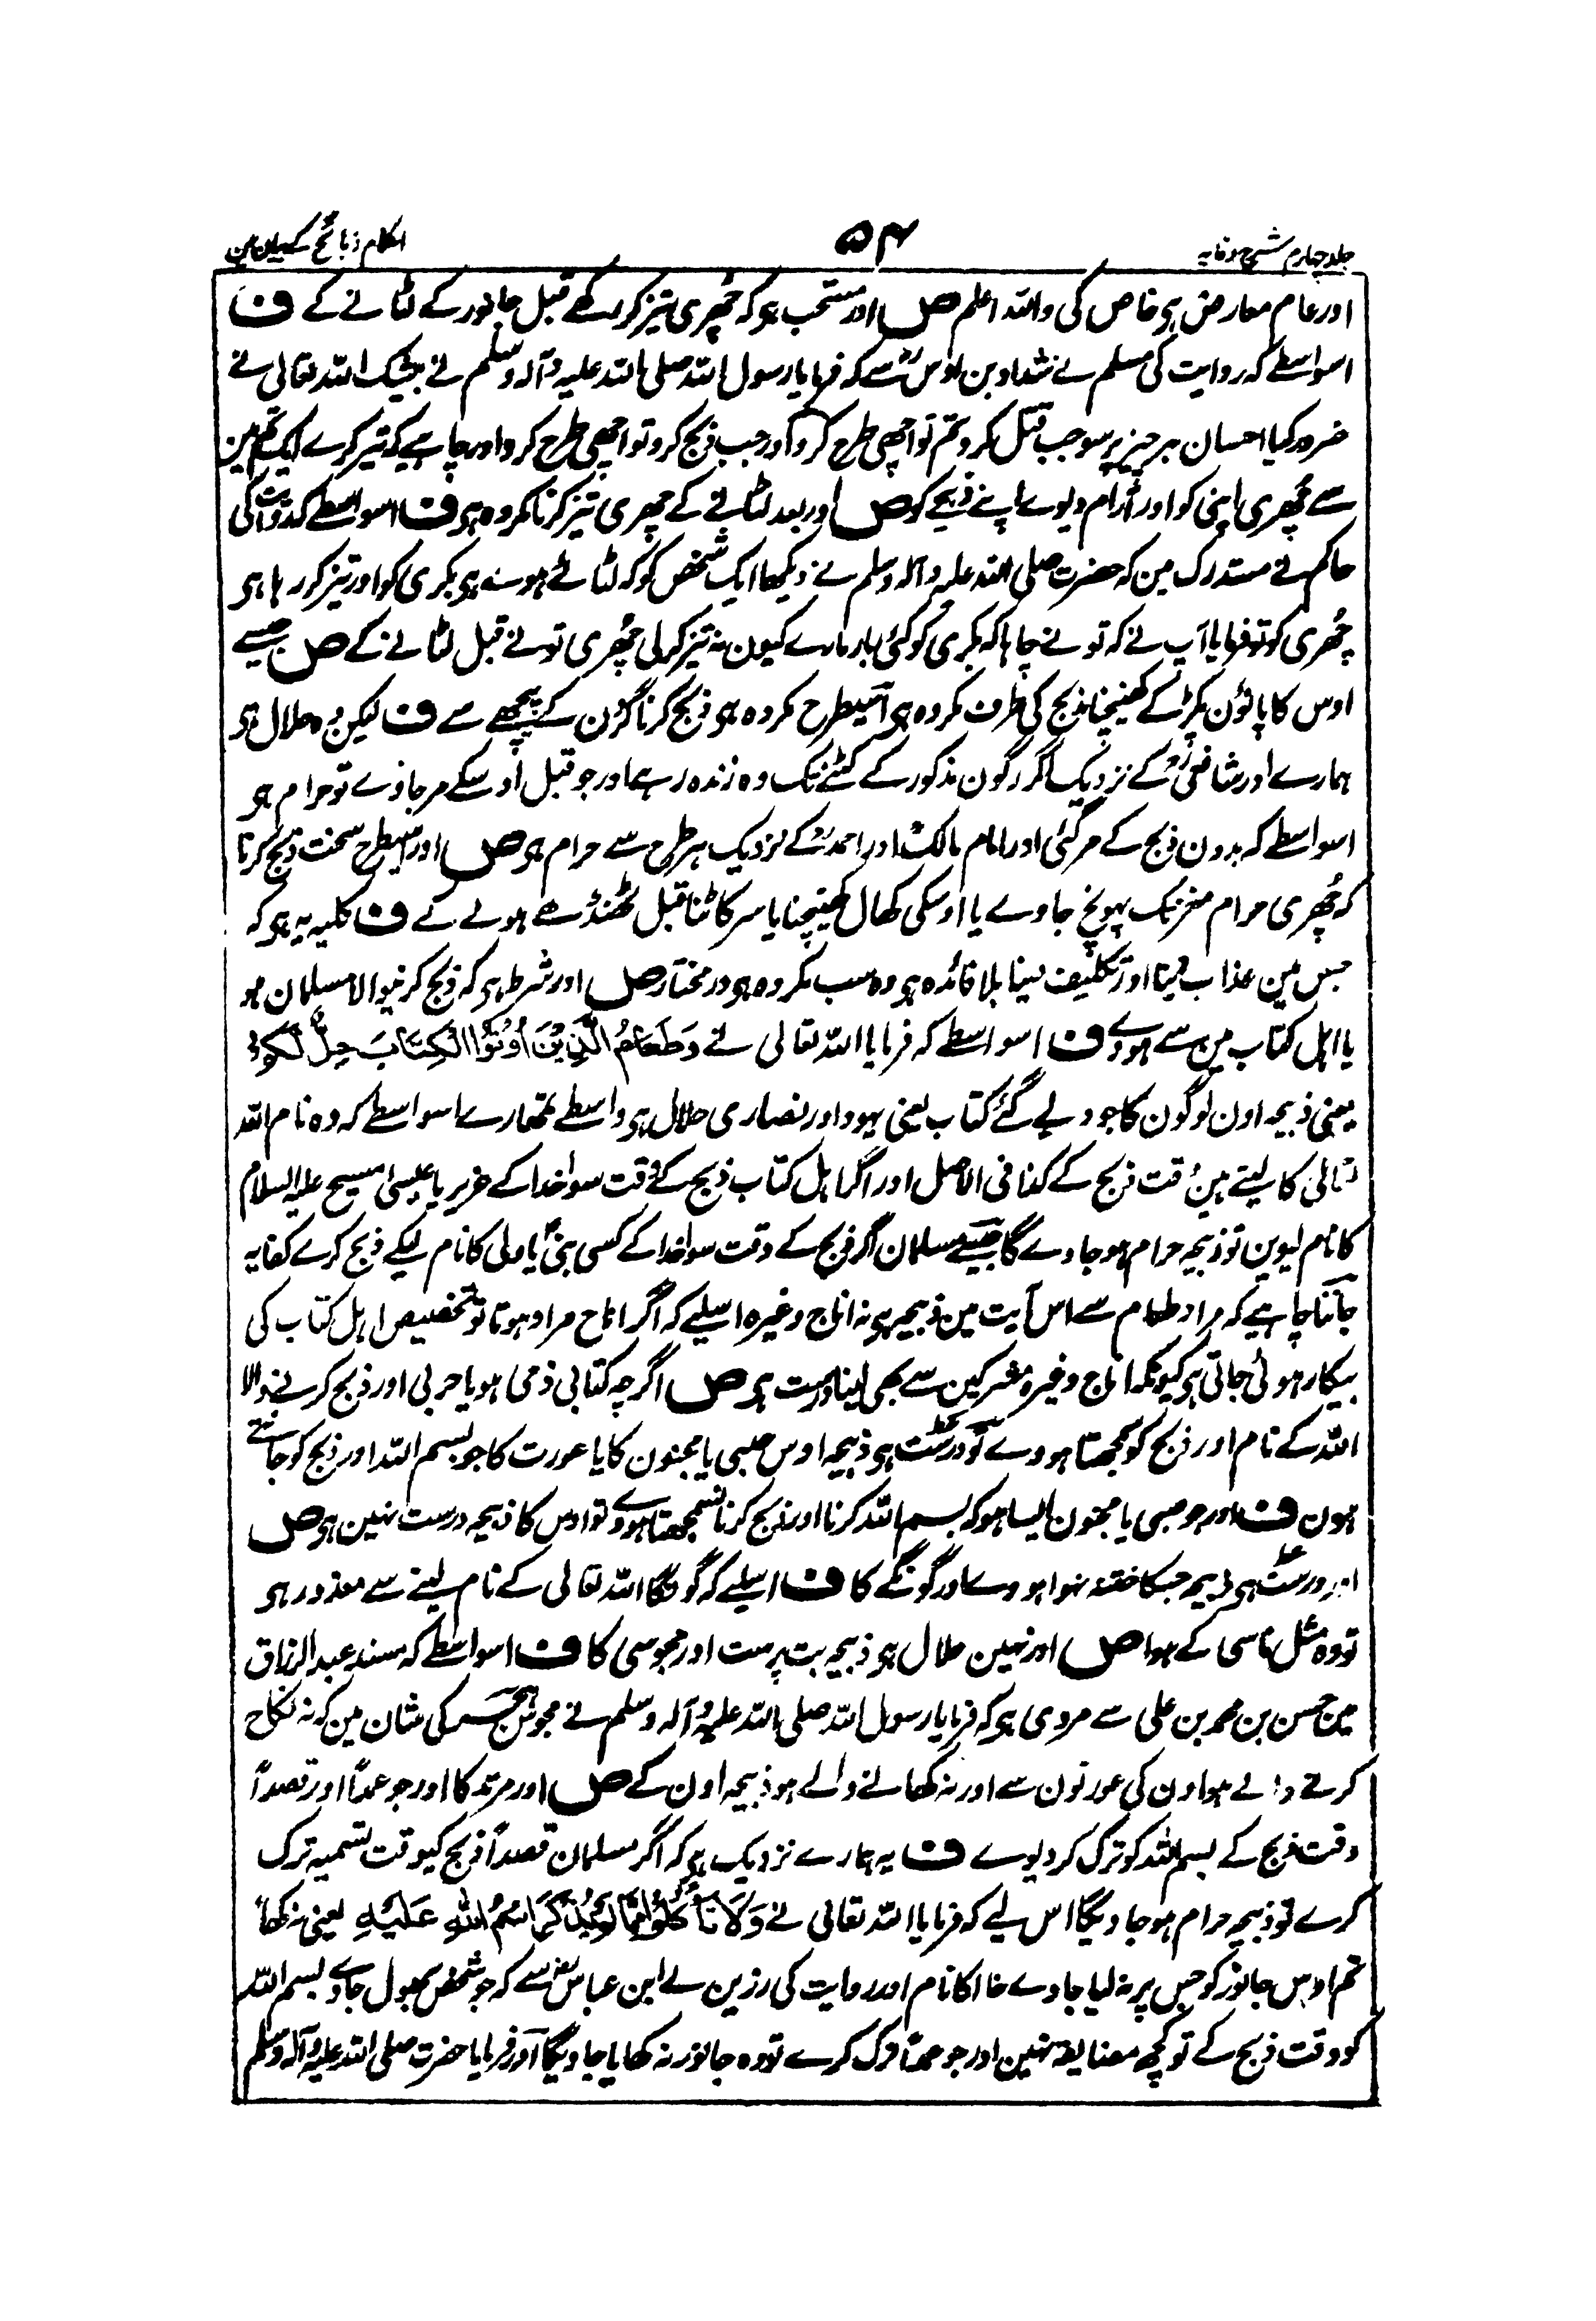 جلد چہارم شرح وقایہ
۵۴
احکام ذبائح کے بیان مین
اور عام معارض ہو خاص کی واللہ اعلم ص اور مستحب ہو کہ چھری تیز کر رکھے قبل جانور کے لٹانے کے ف
اسواسطے کہ روایت کی مسلم نے شداد بن اوس رض سے کہ فرمایا رسول اللہ صلی اللہ علیہ وآلہ وسلم نے بیشک اللہ تعالی نے
ضرور کیا احسان ہر چیز پر سو جب قتل کرو تم تو اچھی طرح کرو اور جب ذبح کرو تو اچھی طرح کرو اور چاہیے کہ تیز کرے ایک تم مین
سے چھری اپنی کو اور آرام دیوے اپنے ذبیحے کو ص اور بعد لٹانے کے چھری تیز کرنا مکروہ ہو ف اسواسطے کہ روایت کی
حاکم نے مستدرک مین کہ حضرت صلی اللہ علیہ وآلہ وسلم نے دیکھا ایک شخص کو کہ لٹائے ہوئے ہو بکری کو اور تیز کر رہا ہو
چھری کو تو فرمایا آپ نے کہ تو نے چاہا کہ بکری کو کئی بار مارے کیون نہ تیز کر لی چھری تو نے قبل لٹانے کے ص جیسے
اوس کا پائون پکڑ کے کھینچنا ذبح کی طرف مکروہ ہو اسیطرح مکروہ ہو ذبح کرنا گردن کے پیچھے سے ف لیکن وہ حلال ہو
ہمارے اور شافعی رح کے نزدیک اگر رگون مذکور کے کٹنے تک وہ زندہ رہے اور جو قبل اوسکے مر جاوے تو حرام ہو
اسواسطے کہ بدون ذبح کے مر گئی اور امام مالک رح اور احمد رح کے نزدیک ہر طرح سے حرام ہو ص اور اسیطرح سخت ذبح کرنا
کہ چھری حرام مغز تک پہونچ جاوے یا اوسکی کھال کھینچنا یا سر کاٹنا قبل ٹھنڈے ہونے کے ف کلیہ یہ ہو کہ
جس مین عذاب دینا اور تکلیف دینا بلا فائدہ ہو وہ سب مکروہ ہو در مختار ص اور شرط ہو کہ ذبح کرنیوالا مسلمان ہو
یا اہل کتاب مین سے ہووے ف اسواسطے کہ فرمایا اللہ تعالی نے وَطَعَامُ الَّذِیْنَ اُوْتُوا الْکِتَابَ حِلٌّ لَّکُمْ
یعنی ذبیحہ اون لوگون کا جو دیے گئے کتاب یعنی یہود اور نصاری حلال ہو واسطے تمھارے اسواسطے کہ وہ نام اللہ
تعالی کا لیتے ہین وقت ذبح کے کذا فی الاصل اور اگر اہل کتاب ذبح کے وقت سوا خدا کے عزیر یا عیسی مسیح علیہ السلام
کا نام لیوین تو ذبیحہ حرام ہو جاوے گا جیسے مسلمان اگر ذبح کے وقت سوا خدا کے کسی نبی یا ولی کا نام لیکے ذبح کرے کفایہ
جاننا چاہیے کہ مراد طعام سے اس آیت مین ذبیحہ ہو نہ اناج وغیرہ اسلیے کہ اگر اناج مراد ہوتا تو تخصیص اہل کتاب کی
بیکار ہوئی جاتی ہو کیونکہ اناج وغیرہ مشرکین سے بھی لینا درست ہو ص اگرچہ کتابی ذمی ہو یا حربی اور ذبح کرنے والا
اللہ کے نام اور ذبح کو سمجھتا ہووے تو درست ہو ذبیحہ اوس صبی یا مجنون کا یا عورت کا جو بسم اللہ اور ذبح کو جانتے
ہون ف اور جو صبی یا مجنون ایسا ہو کہ بسم اللہ کرنا اور ذبح کرنا نسمجھتا ہووے تو اوس کا ذبیحہ درست نہین ہو ص
اور درست ہو ذبیحہ جسکا ختنہ نہوا ہووے اور گونگے کا ف اسلیے کہ گونگا اللہ تعالی کے نام لینے سے معذور ہو
تو وہ مثل ناسی کے ہوا ص اور نہین حلال ہو ذبیحہ بت پرست اور مجوسی کا ف اسواسطے کہ مسند عبد الرزاق
مین حسن بن محمد بن علی سے مروی ہو کہ فرمایا رسول اللہ صلی اللہ علیہ وآلہ وسلم نے مجوس ہجر کی شان مین کہ نہ نکاح
کرنے والے ہو اون کی عورتون سے اور نہ کھانے والے ہو ذبیحہ اون کے ص اور مرتد کا اور جو عمداً اور قصداً
وقت ذبح کے بسم اللہ کو ترک کر دیوے ف یہ ہمارے نزدیک ہو کہ اگر مسلمان قصداً ذبح کیوقت تسمیہ ترک
کرے تو ذبیحہ حرام ہو جاویگا اس لیے کہ فرمایا اللہ تعالی نے وَلَا تَأْكُلُوْا مِمَّا لَمْ يُذْكَرِ اسْمُ اللهِ عَلَيْهِ یعنی نہ کھاؤ
تم اوس جانور کو جس پر نہ لیا جاوے خدا کا نام اور روایت کی رزین نے ابن عباس رض سے کہ جو شخص بھول جاوے بسم اللہ
کو وقت ذبح کے تو کچھ مضایقہ نہین اور جو عمداً ترک کرے تو وہ جانور نہ کھایا جاویگا اور فرمایا حضرت صلی اللہ علیہ وآلہ وسلم